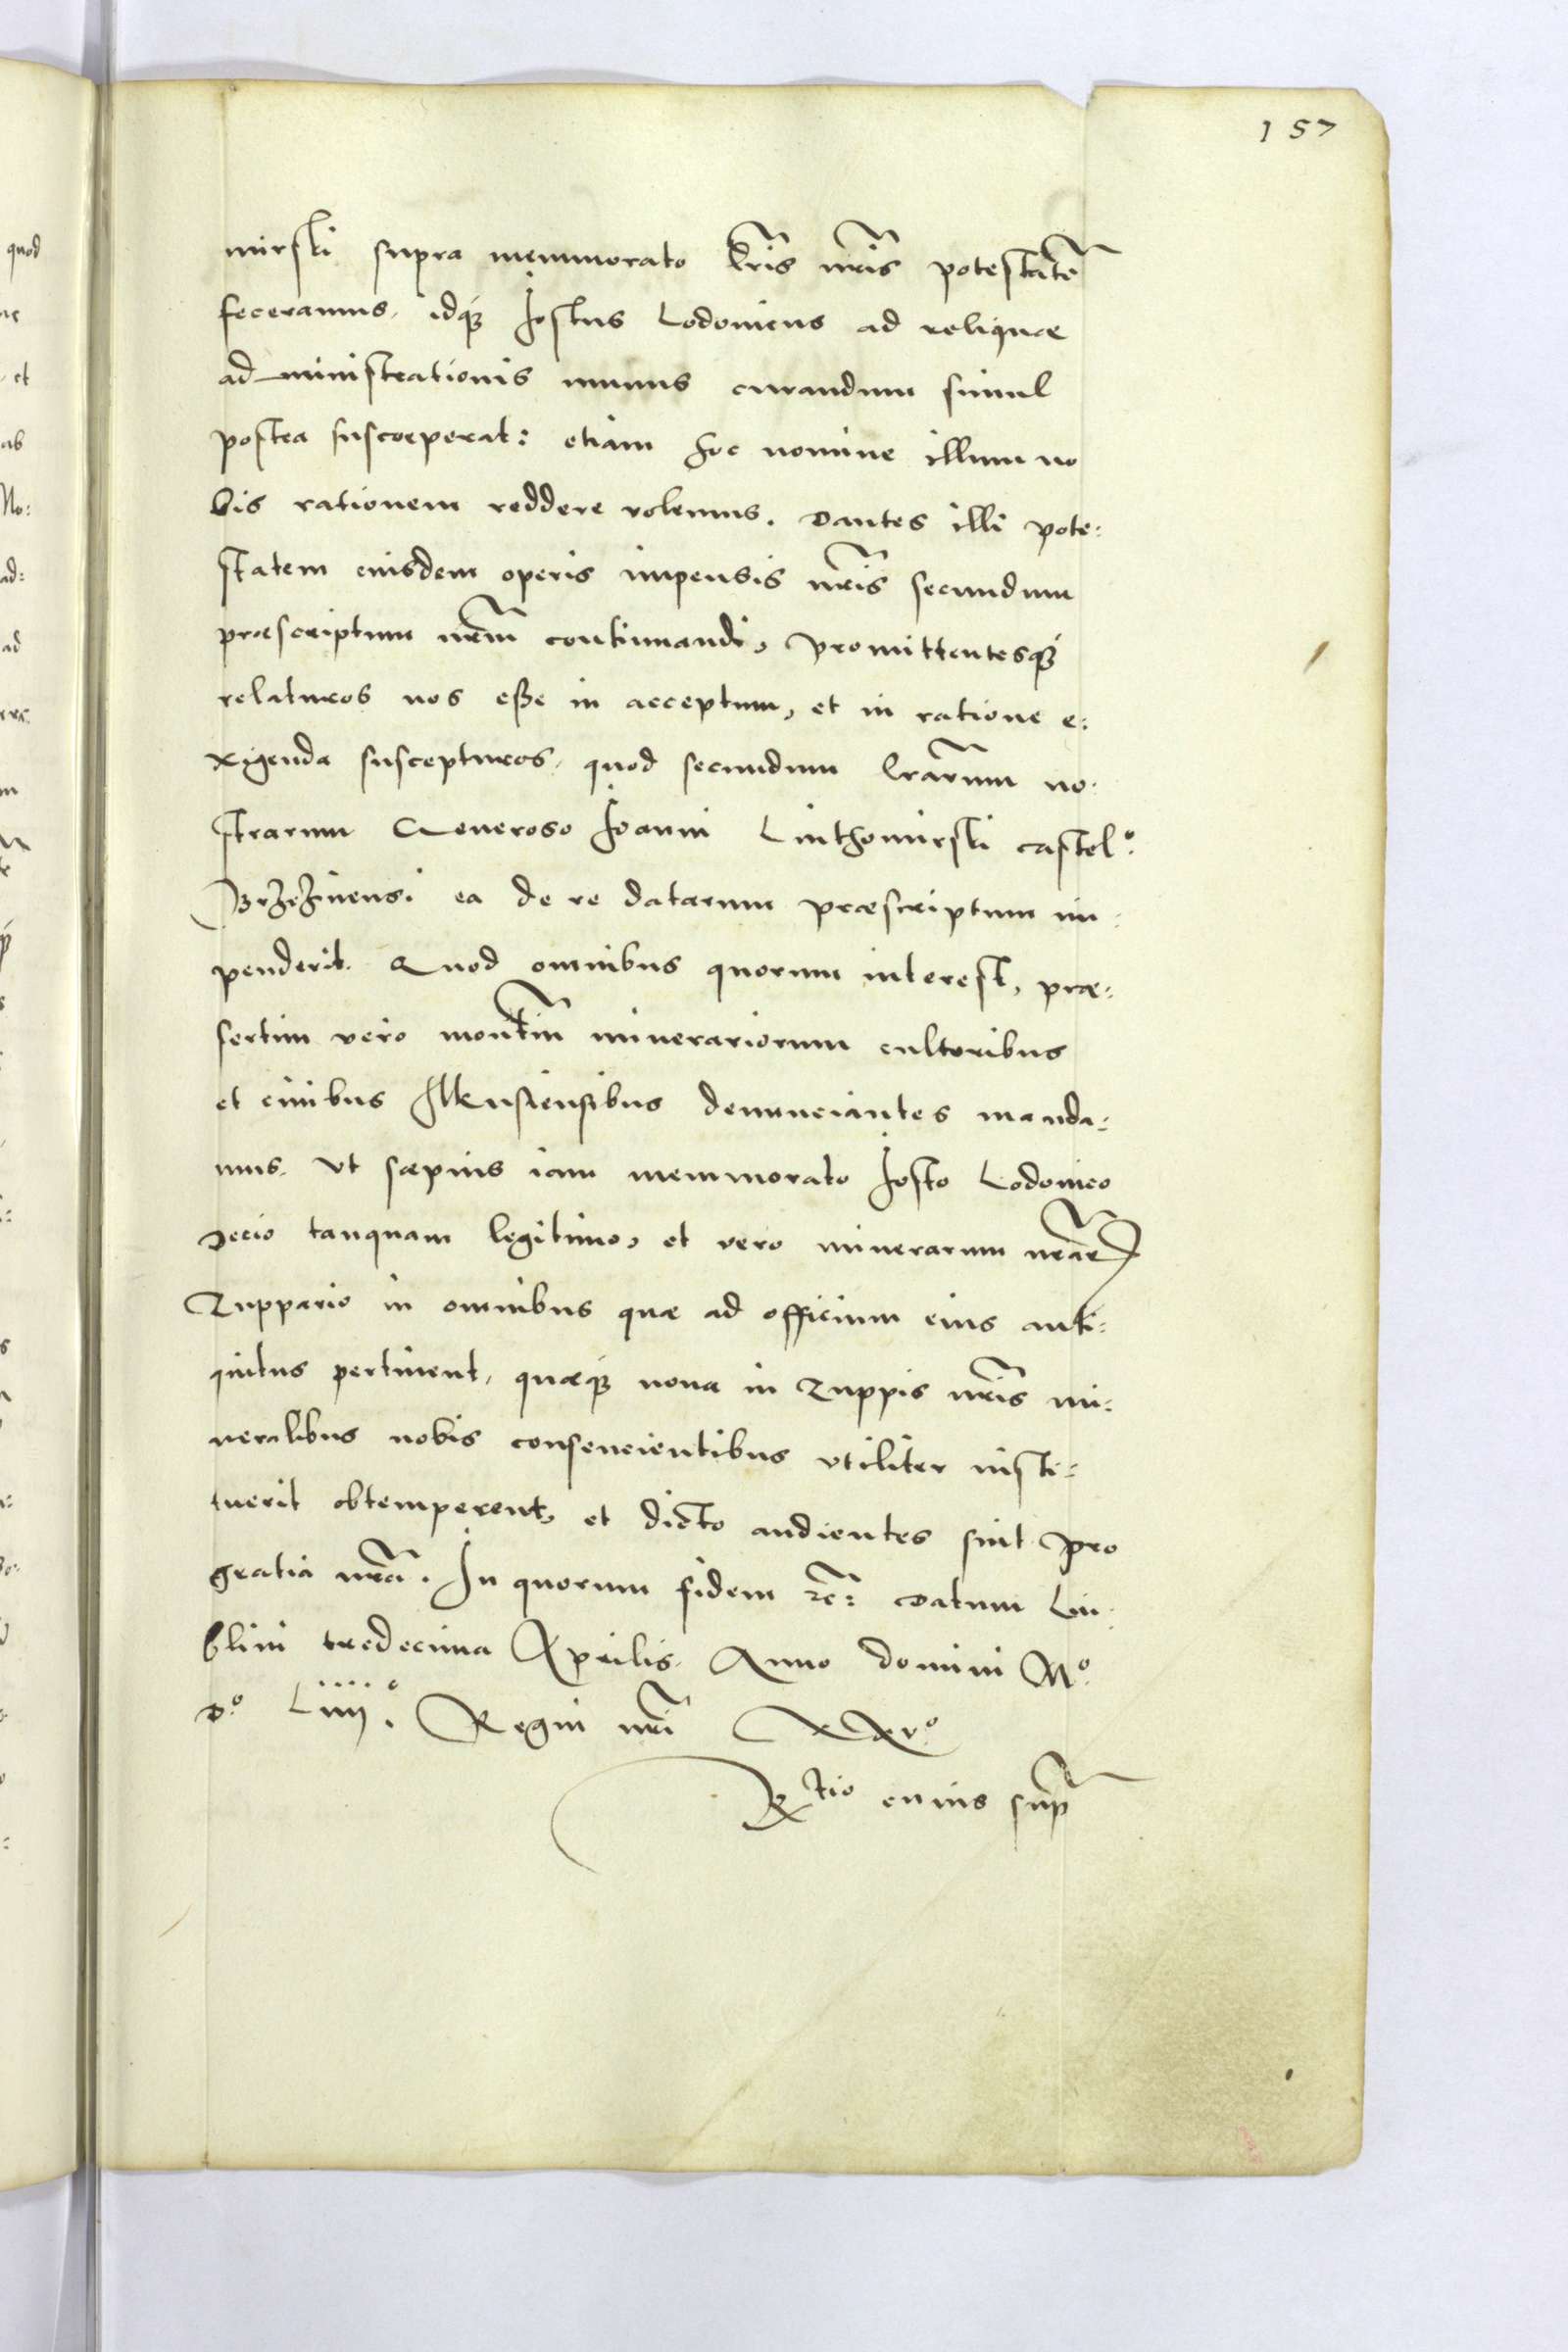 157
mirski supra memmorato lr̃is nr̃is potestatẽ
feceramus, idq₃ Jostus Lodouicus ad reliquæ
administrationis munus curandum simul
postea suscœperat: etiam hoc nomine illum no
bis rationem reddere volemus. Dantes illi pote:
statem eiusdem operis impensis nr̃is secundum
præscriptum nr̃m continuandi, promittentesq₃
relaturos nos esse in acceptum, et in ratione e:
xigenda suscepturos, quod secundum lr̃arum no:
strarum Generoso Joanni Luthomirski castelº:
Brzezinensi ea de re datarum præscriptum im:
penderit. Quod omnibus quorum interest, præ:
sertim vero montiũ minerariorum cultoribus
et ciuibus Ilkusiensibus denunciantes manda:
mus. Vt sæpius iam memmorato Josto Lodouico
Decio tanquam legitimo, et vero minerarum nr̃ar
Zuppario in omnibus quæ ad officium eius anti:
quitus pertinent, quæq₃ noua in Zuppis nr̃is mi:
neralibus nobis consencientibus vtiliter insti:
tuerit obtemperent, et dicto audientes sint pro
gratia nr̃a. In quorum fidem rc̃: Datum Lu:
blini tredecima Aprilis. Anno domini Mº.
Dº. Liiijº. Regni nr̃i XXVº.
Rtio cuius sup̃
quod
et
ab
No:
ad:
ad